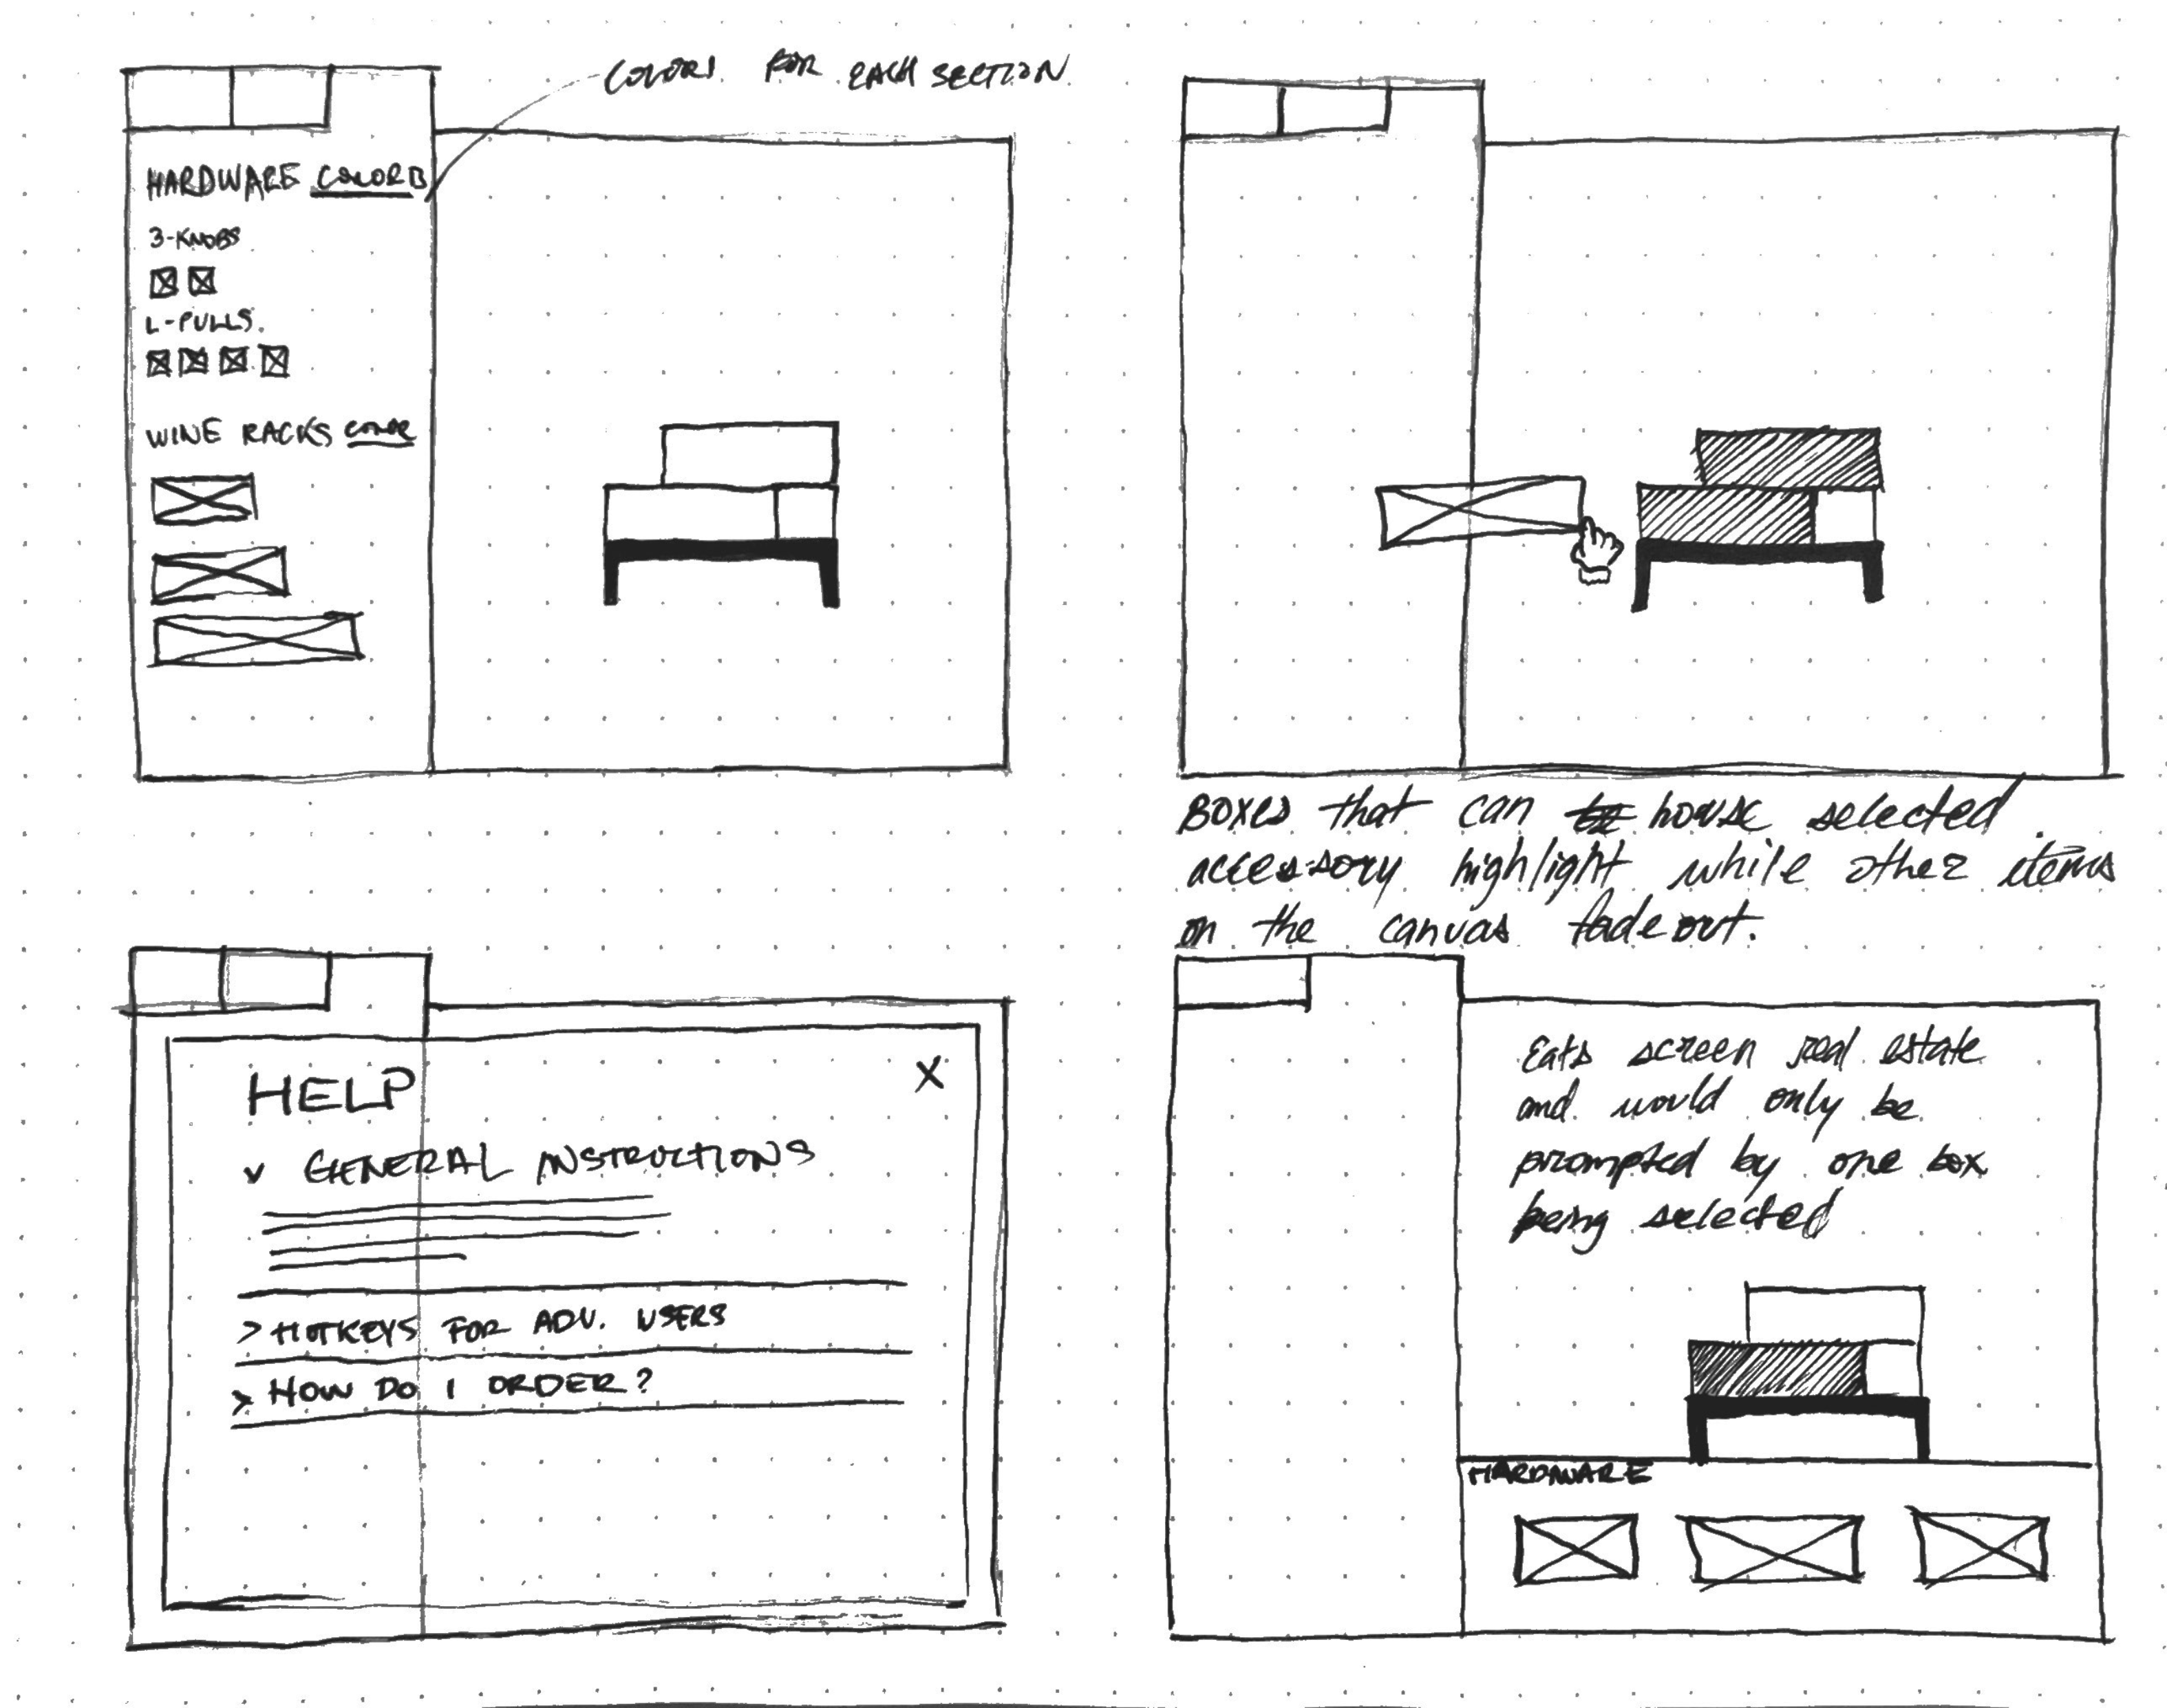 COLORS FOR EACH SECTION
HARDWARE COLOR
3-KNOBS
L-PULLS.
WINE RACKS COLOR
BOXES that can house selected
accessory highlight while other items
on the canvas fade out.
HELP X
v GENERAL INSTRUCTIONS
> HOTKEYS FOR ADV. USERS
> HOW DO I ORDER?
Eats screen real estate
and would only be
prompted by one box
being selected
HARDWARE